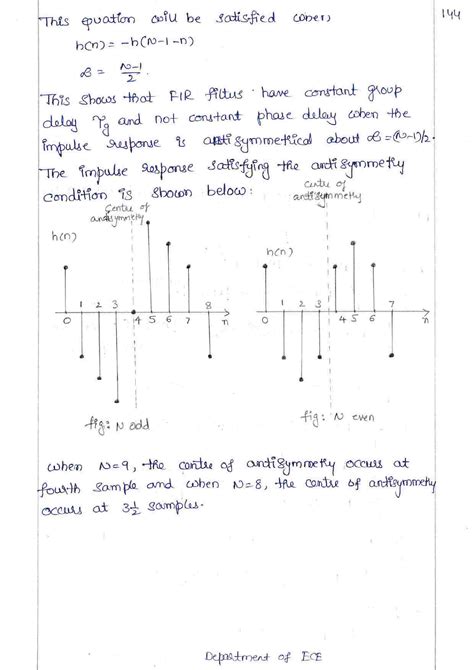 144
This equation will be satisfied when,
h(n) = -h(N-1-n)
α = N-1/2.
This shows that FIR filters have constant group
delay τg and not constant phase delay when the
impulse response is antisymmetrical about α = (N-1)/2.
The impulse response satisfying the antisymmetry
condition is shown below:
Centre of
antisymmetry
h(n)
0 1 2 3 4 5 6 7 8 n
fig: N odd
Centre of
antisymmetry
h(n)
0 1 2 3 4 5 6 7 n
fig: N even
when N=9, the centre of antisymmetry occurs at
fourth sample and when N=8, the centre of antisymmetry
occurs at 3½ samples.
Department of ECE